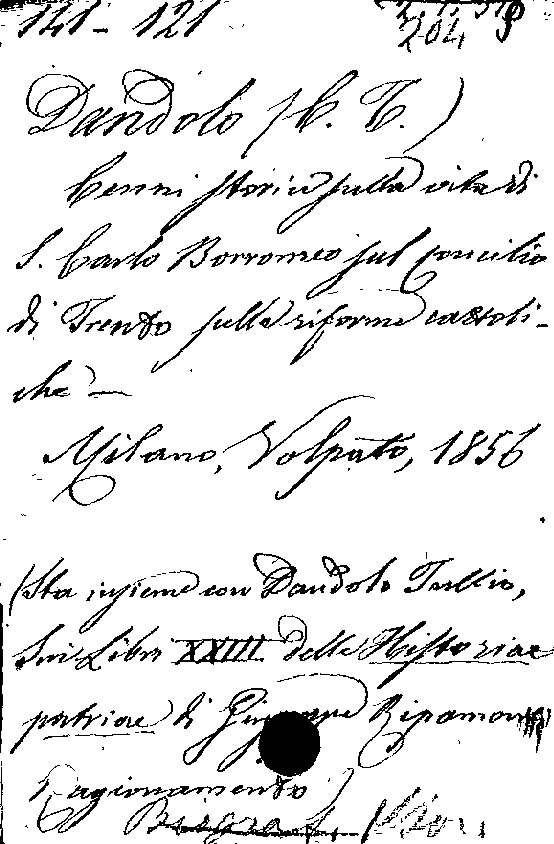 141 - 121
204
Dandolo (C. T.)
Cenni storici sulla vita di
S. Carlo Borromeo sul concilio
di Trento sulle riforme cattoli-
che —
Milano, Volpato, 1856
(Sta insieme con Dandolo Tullio,
Sui Libri XXIII delle Historiae
patriae di Giuseppe Ripamonti
Ragionamento)